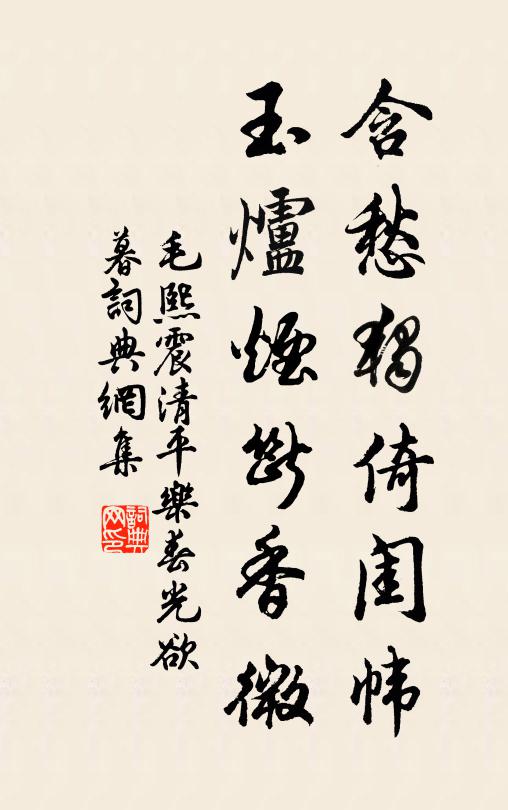 含愁獨倚閨幃
玉爐煙斷香微
毛熙震清平樂春光欲
暮詞典網集
詞典网印